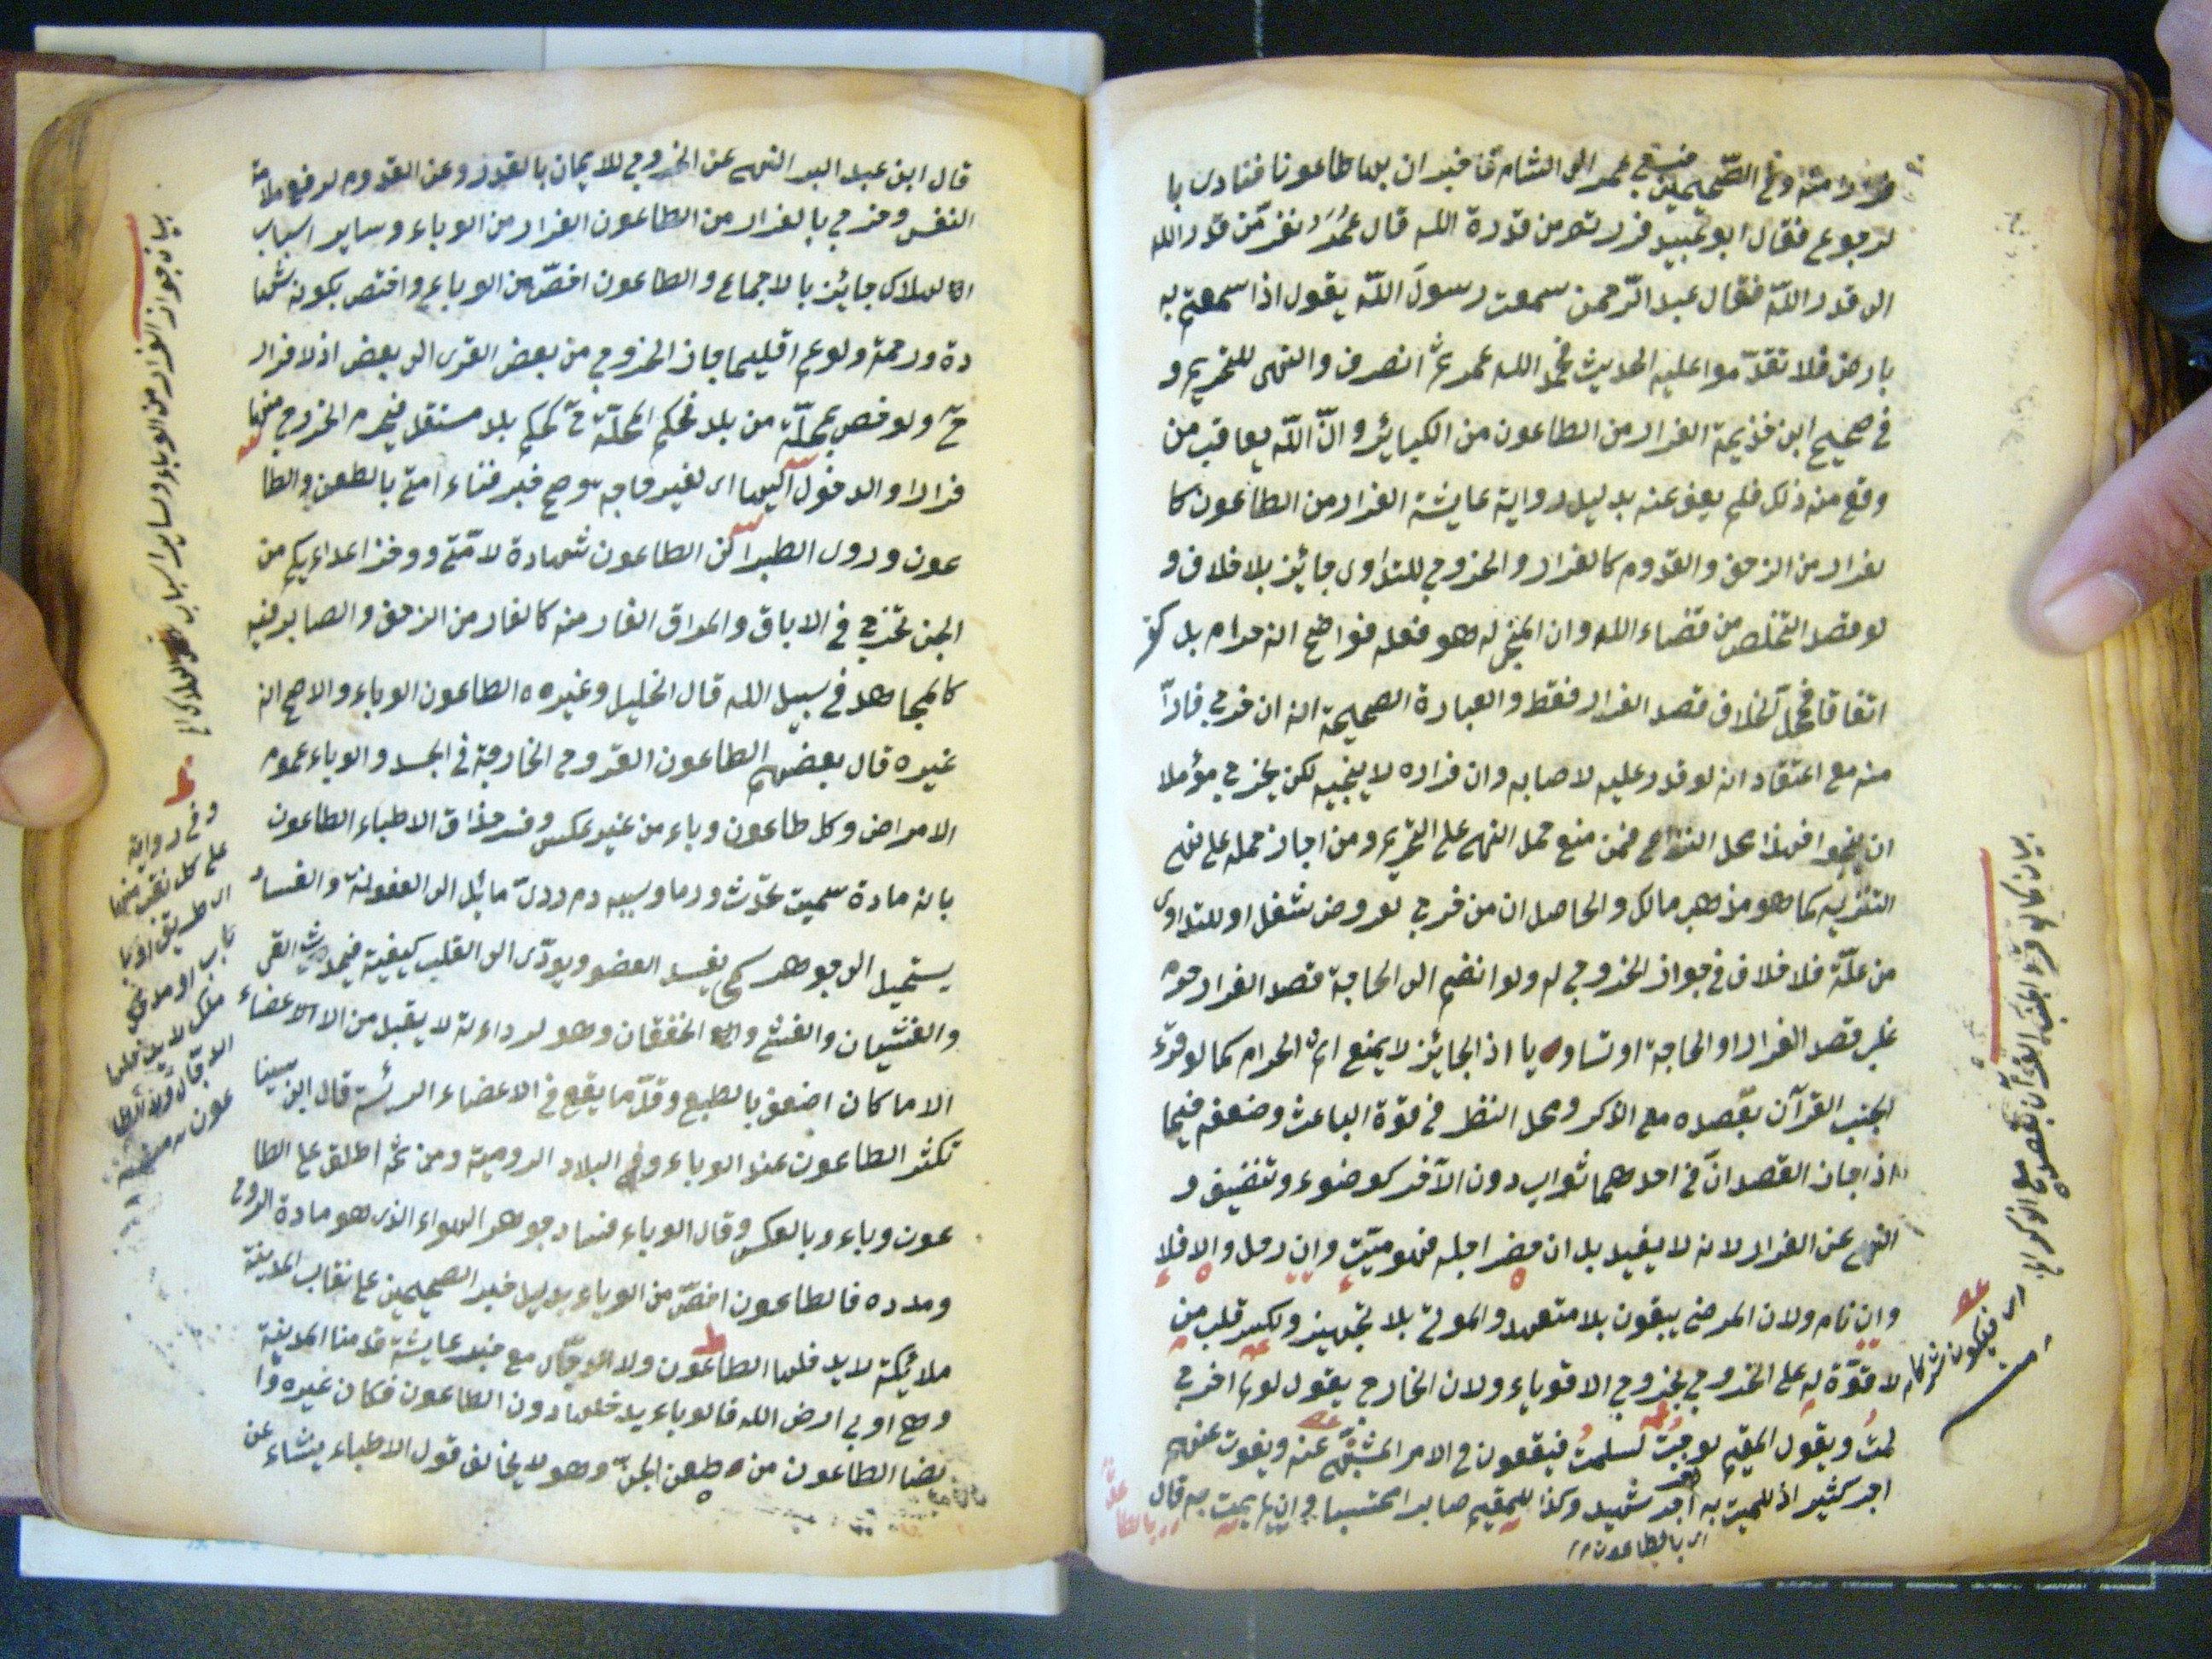 فرارا منه وفي الصحيحين خرج عمر الى الشام فاخبر ان بها طاعونا فنادى با
لرجوع فقال ابو عبيد فررتم من قدرة الله قال عمر نفر من قدر الله
الى قدر الله فقال عبد الرّحمن سمعت رسول اللّه يقول اذا سمعتم به
بارض فلا تقدّموا عليه الحديث فحمد الله عمر ثم انصرف والنهى للتحريم و
في صحيح ابن خزيمة الفرار من الطاعون من الكبائر وانّ اللّه يعاقب من
وقع منه ذلك فلم يعف عنه بدليل رواية عايشة الفرار من الطاعون كا
لفرار من الزحف والقدوم كالفرار والخروج للتداوى جائز بلا خلاف و
لو قصد التخلص من قضاء الله وان المنجى له هو فعله فواضح انه حرام بل كفر
اتفاقا فمحلّ الخلاف قصد الفرار فقط والعبارة الصحيحة انه ان خرج فارّا
منه مع اعتقاد انه لو قدر عليه لاصابه وان فراره لا ينجيه لكن يخرج مؤملا
ان ينجوا فهذا محل النزاع فمن منع حمل النهى على التحريم ومن اجاز حمله على نهى
التنزيه كما هو مذهب مالك والحاصل ان من خرج لعروض شغل او للتداوى
من علّة فلا خلاف في جواز الخروج له ولو انضم الى الحاجة قصد الفرار حرم
غلب قصد الفرار او الحاجة او تساويا اذ الجائز لا يمنع اثم الحرام كما لو قرء
الجنب القرآن بقصده مع الذكر ومحل النظر في قوة الباعث وضعفه فيما
اذا جاز القصدان في احدهما ثواب دون الآخر كوضوء وتنضيف و
النهى عن الفرار لانه لا يفيد بل ان حضر اجله فهو ميّت وان رحل والا فلا
وان نام ولان المرضى يبقون بلا متعهد والموتى بلا تجهيز ولكسر قلب من
لا قوّة له على الخروج بخروج الاقوياء ولان الخارج يقول لو لم اخرج
لمت ويقول المقيم لو خرجت لسلمت فيقعون في الامر المنهى عنه ويفوت عنهم
اجر كثير اذ للميت به اجر شهيد وكذا للمقيم صابرا محتسبا وان لم يمت به قال
اى بالطاعون
بيان حكم لو قرء الجنب القرآن بقصده مع الذكر الخ
اى فيكون شركا
قال ابن عبد البر النهى عن الخروج للايمان بالقدر وعن القدوم لدفع ملامة
النفس وخرج بالفرار من الطاعون الفرار من الوباء وساير اسباب
الهلاك جائز بالاجماع والطاعون اخصّ من الوباء واختص بكونه شها
دة ورحمة ولو عم اقليما جاز الخروج من بعض القرى الى بعض اذ لا فرار
ح ولو خص محلّة من بلد فحكم المحلّة ح كحكم بلد مستقل فيحرم الخروج منها
فرارا والدخول اليها اى لغير حاجة وصح خبر فناء امتى بالطعن والطا
عون وروى الطبرانى الطاعون شهادة لامّتى ووخز اعدائكم من
الجن تخرج في الاباط والمراق الفار منه كالفار من الزحف والصابر فيه
كالمجاهد في سبيل الله قال الخليل وغيره الطاعون الوباء والاصح انه
غيره قال بعضهم الطاعون القروح الخارجة في الجسد والوباء عموم
الامراض وكل طاعون وباء من غير عكس وفسر حذاق الاطباء الطاعون
بانه مادة سميت تحدث ورما وسببه دم ردىّ مائل الى العفونة والفساد
يستحيل الى جوهر سمّى يفسد العضو ويودّى الى القلب كيفية فيحدث القى
والغشيان والغشى والخفقان وهو لرداءته لا يقبل من الاعضاء
الا ما كان اضعف بالطبع وقلّ ما يقع في الاعضاء الرئسة قال ابن سينا
تكثر الطاعون عند الوباء وفي البلاد الروميه ومن ثم اطلق على الطا
عون وباء وبالعكس وقال الوباء فساد جوهر الهواء الذى هو مادة الروح
ومدده فالطاعون اخصّ من الوباء بدليل خبر الصحيحين على نقاب المدينة
ملائكة لا يدخلها الطاعون ولا الدجّال مع خبر عايشة قدمنا المدينة
وهى اوبى ارض الله فالوباء يدخلها دون الطاعون فكان غيره وا
يضا الطاعون من طعن الجنّ وهو لا يخالف قول الاطباء ينشاء عن
بيان جواز الفرار من الوباء وساير اسباب الهلاك الخ
وفي رواية
على كل نقب منها